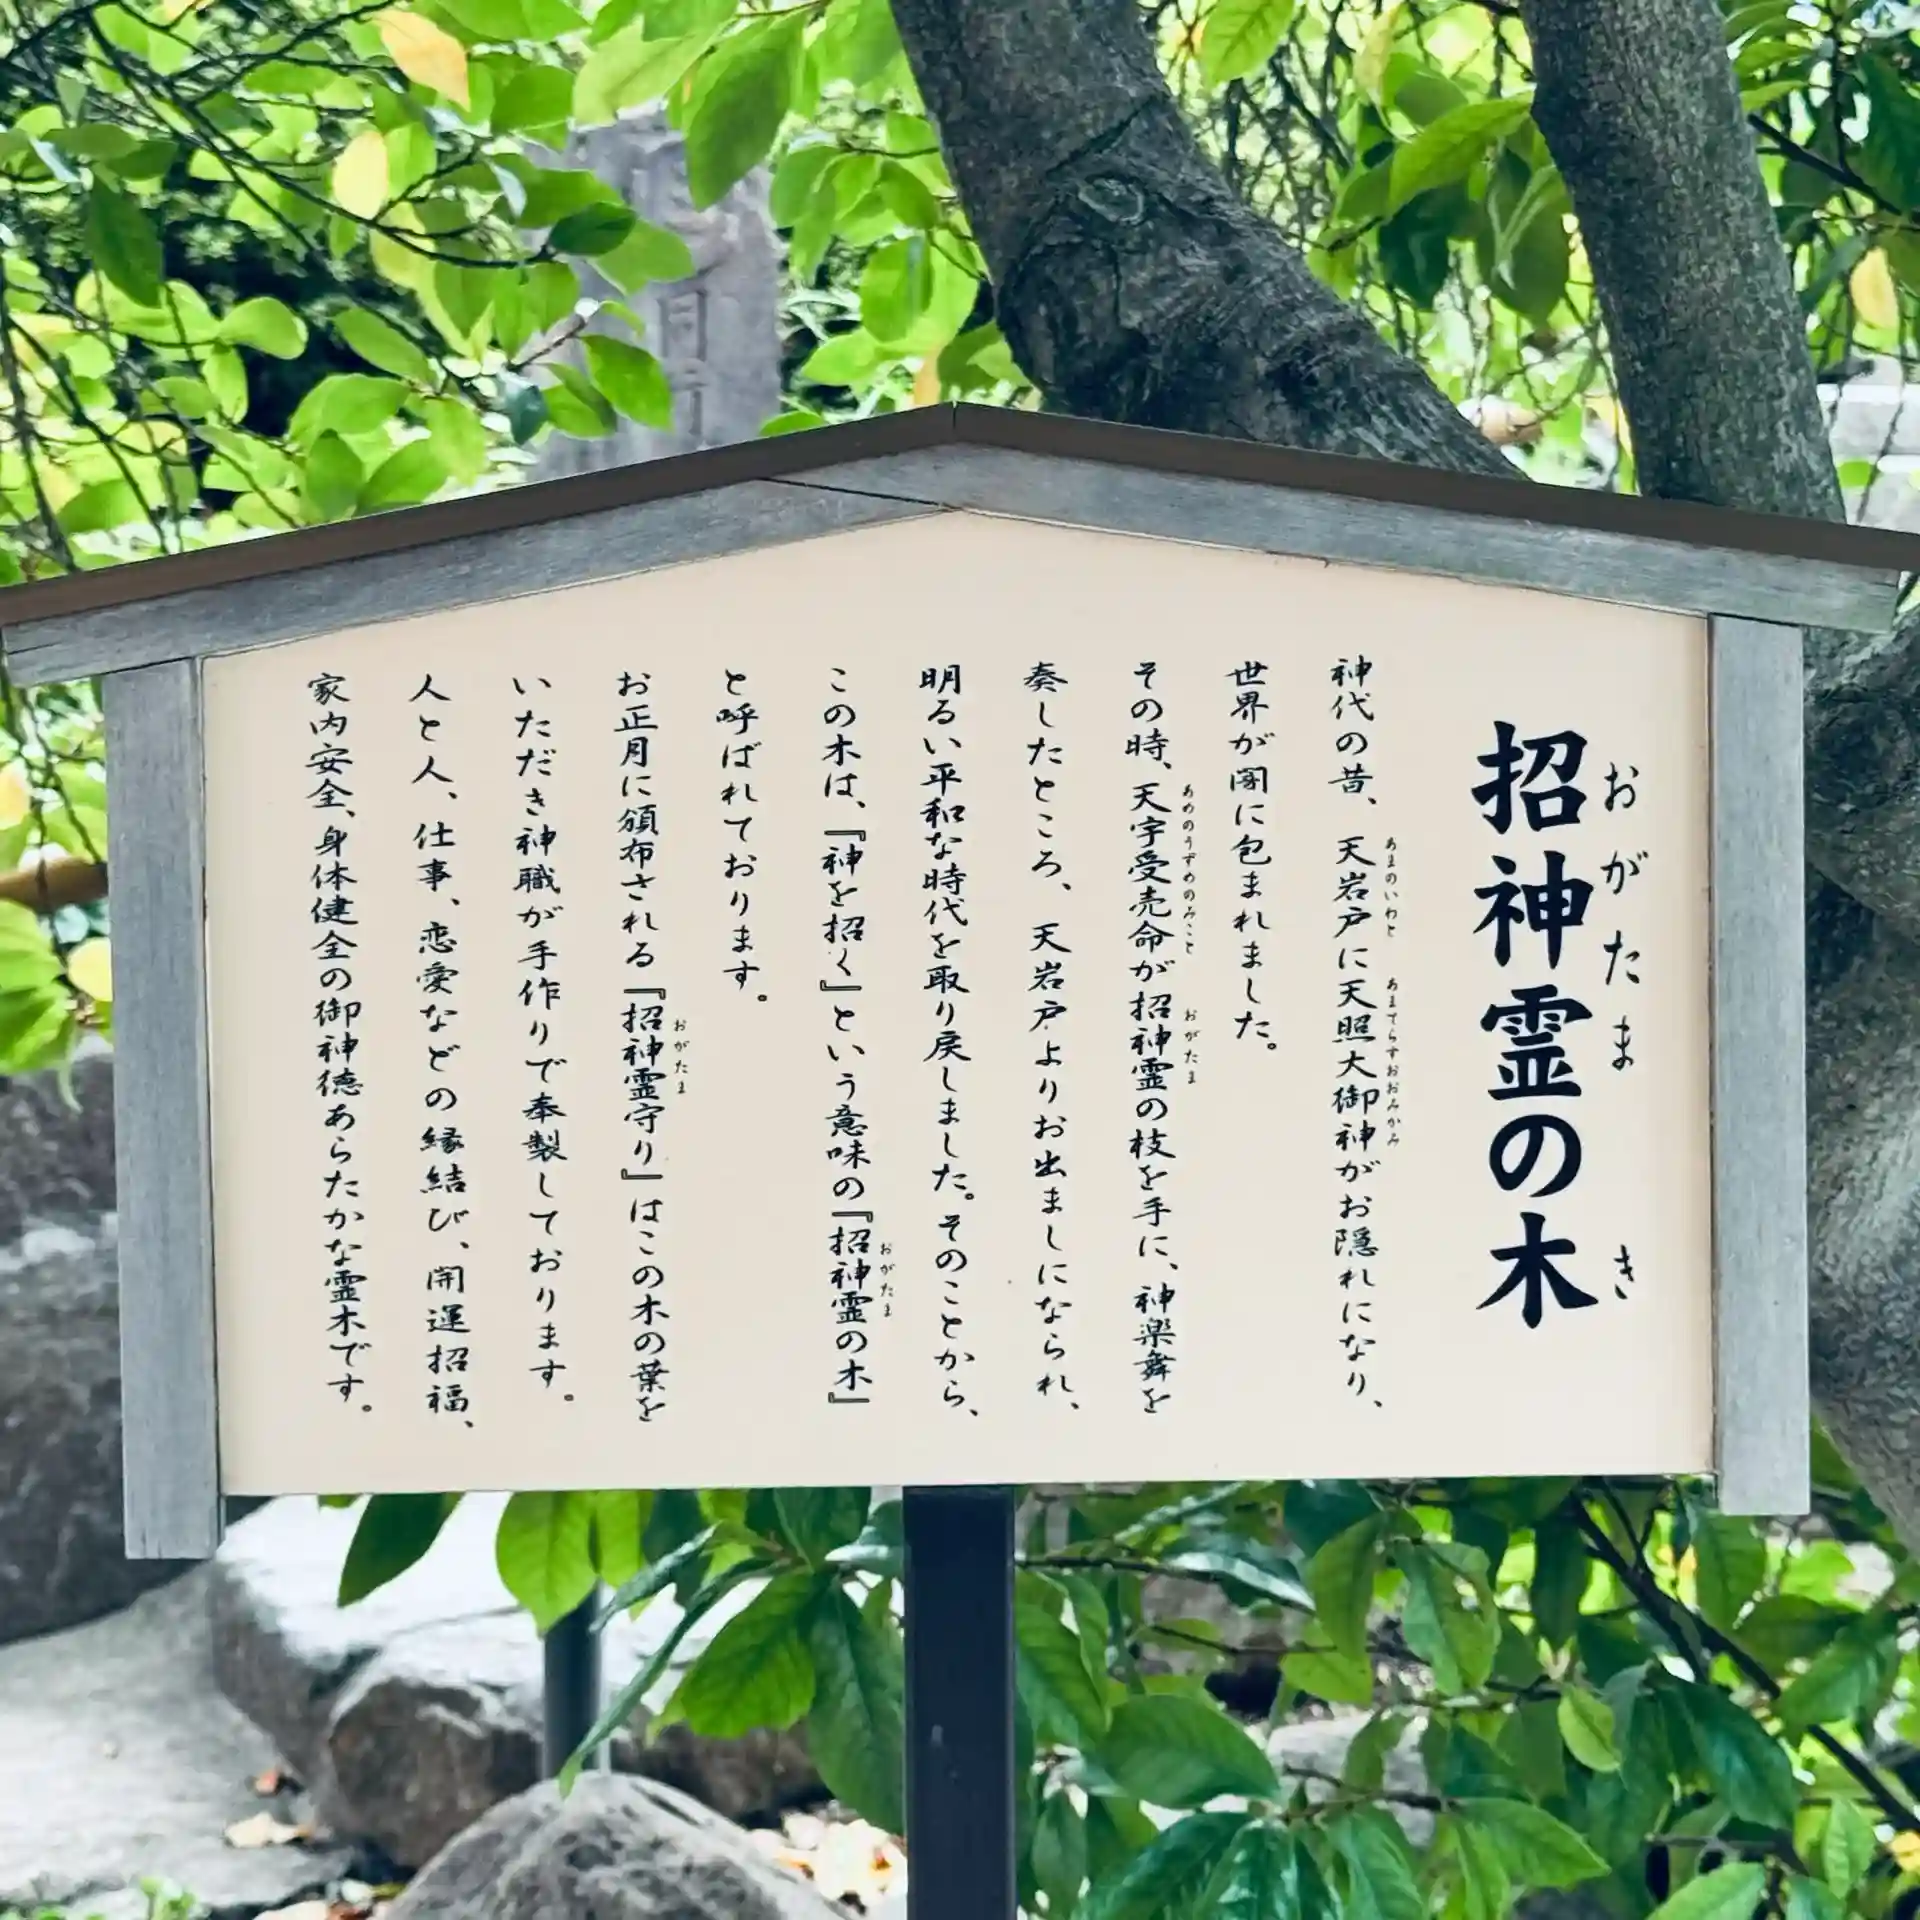 招神霊の木
おがたま き
神代の昔、天岩戸に天照大御神がお隠れになり、
あまのいわと あまてらすおおみかみ
世界が闇に包まれました。
その時、天宇受売命が招神霊の枝を手に、神楽舞を
あめのうずめのみこと おがたま
奏したところ、天岩戸よりお出ましになられ、
明るい平和な時代を取り戻しました。そのことから、
この木は、『神を招く』という意味の『招神霊の木』
おがたま
と呼ばれております。
お正月に頒布される『招神霊守り』はこの木の葉を
おがたま
いただき神職が手作りで奉製しております。
人と人、仕事、恋愛などの縁結び、開運招福、
家内安全、身体健全の御神徳あらたかな霊木です。